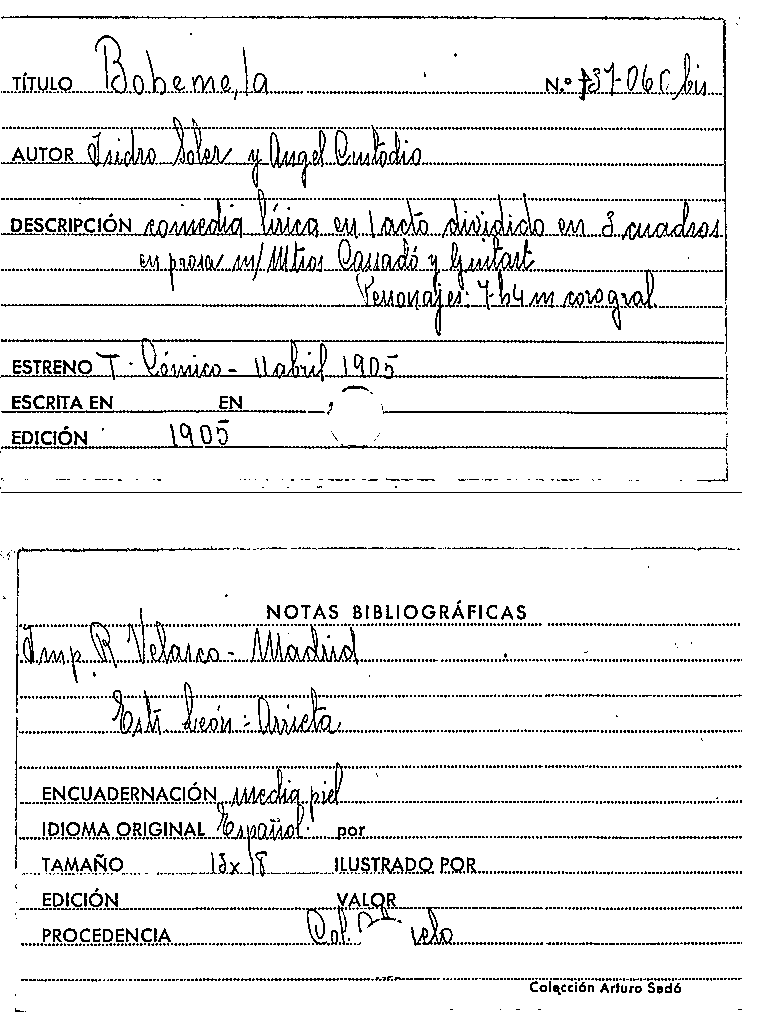 TÍTULO Boheme, la N.º 737-06 C bis
AUTOR Isidro Soler y Angel Custodio
DESCRIPCIÓN comedia lírica en 1 acto dividido en 3 cuadros
en prosa m/ Mtros Cassadó y Guitart
Personajes: 7 h 4 m coro gral
ESTRENO T. Cómico - 11 abril 1905
ESCRITA EN EN
EDICIÓN 1905
NOTAS BIBLIOGRÁFICAS
Imp. R Velasco - Madrid
Estr. León - Arrieta
ENCUADERNACIÓN media piel
IDIOMA ORIGINAL Español por
TAMAÑO 13 x 18 ILUSTRADO POR
EDICIÓN VALOR
PROCEDENCIA Col.
Colección Arturo Sedó